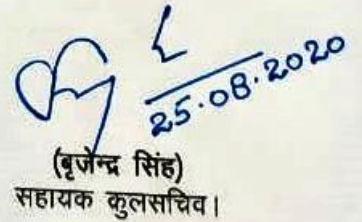 25.08.2020
(बृजेन्द्र सिंह)
सहायक कुलसचिव।